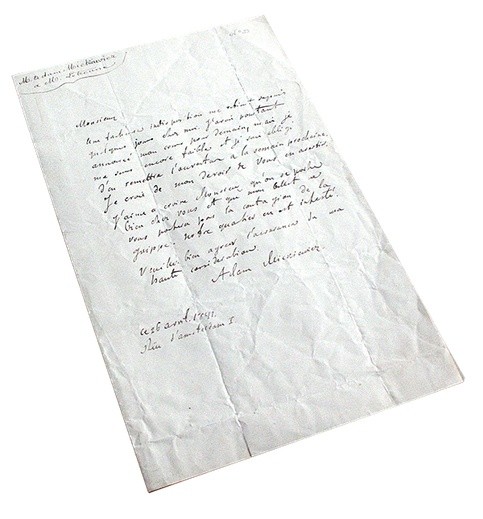 M. Adam Mickiewicz
à Mr.
Monsieur
Une fâcheuse indisposition me retient
quelques jours chez moi. J'avais pourtant
annoncé mon cours pour demain, mais je
me sens encore faible et je suis obligé
d'en remettre l'ouverture à la semaine prochaine.
Je crois de mon devoir de vous en avertir.
J'aime à croire Monsieur qu'on se porte
bien chez vous et que mon billet
vous portera pas la contagion de la
grippe. notre quartier en est infesté.
Veuillez bien agréer l'assurance de ma
haute considération.
Adam Mickiewicz
ce 26 avril
Rue d'amsterdam 1